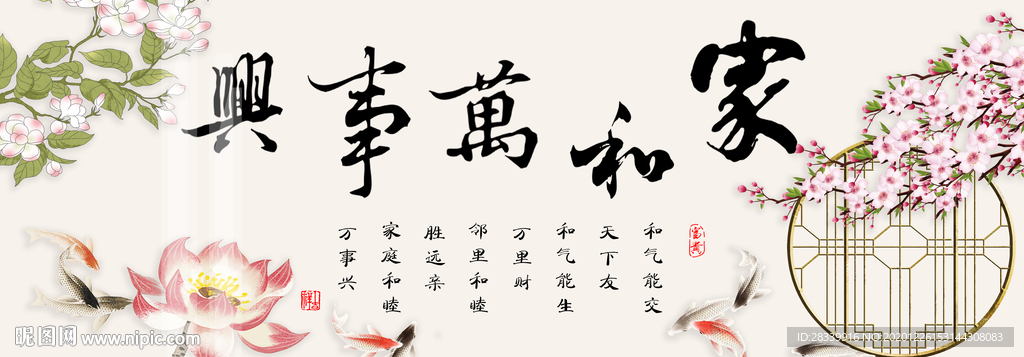 家和萬事興
和气能交
天下友
和气能生
万里财
邻里和睦
胜远亲
家庭和睦
万事兴
昵图网 www.nipic.com
ID:28339916 NO:20201226153144308083